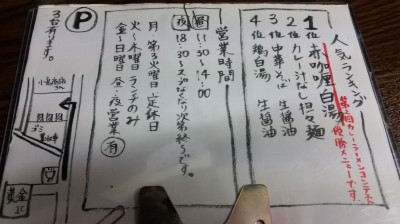 人気ランキング
1位 赤咖喱白湯
第2回カレーラーメンコンテスト
優勝メニューです。
2位 カレー汁なし担々麺
3位 中華そば 生醤油
4位 鶏白湯 生醤油
営業時間
昼 11:30〜14:00
夜 18:30〜スープなくなり次第終了です。
月・第3火曜日 定休日
火〜木曜日 ランチのみ
金〜日曜日 昼・夜営業
P 有
3台有ります。
黄金